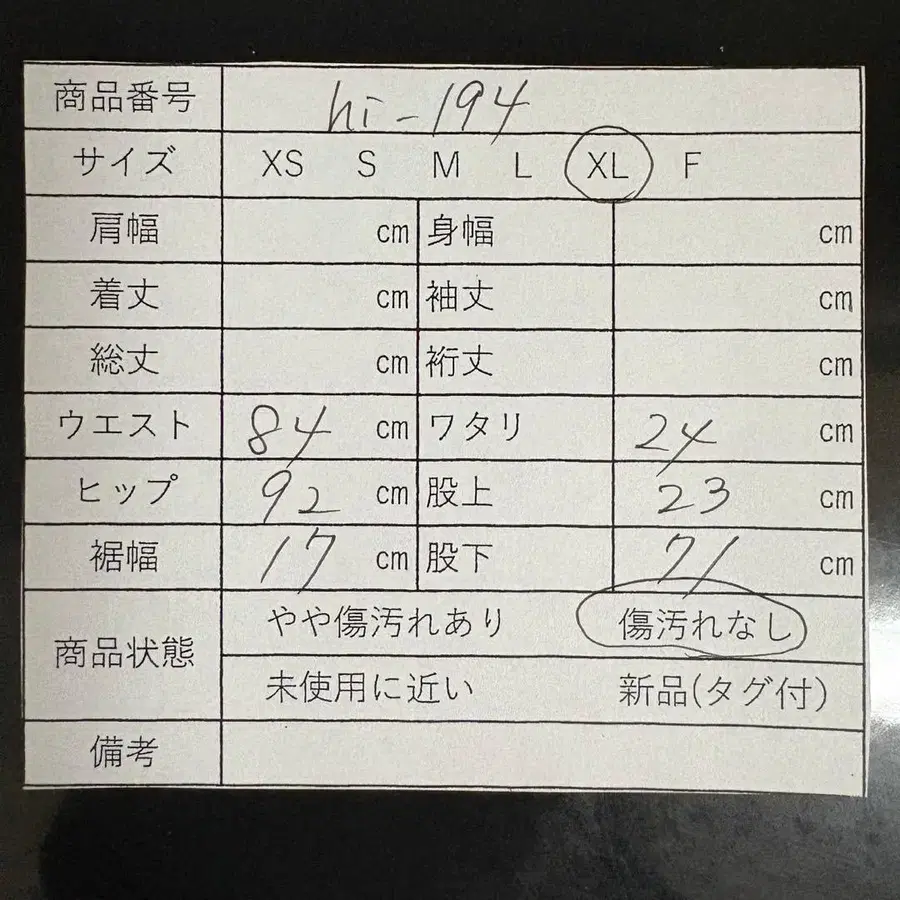 商品番号 hi-194
サイズ XS S M L XL F
肩幅 cm 身幅 cm
着丈 cm 袖丈 cm
総丈 cm 裄丈 cm
ウエスト 84 cm ワタリ 24 cm
ヒップ 92 cm 股上 23 cm
裾幅 17 cm 股下 71 cm
商品状態 やや傷汚れあり 傷汚れなし
未使用に近い 新品(タグ付)
備考